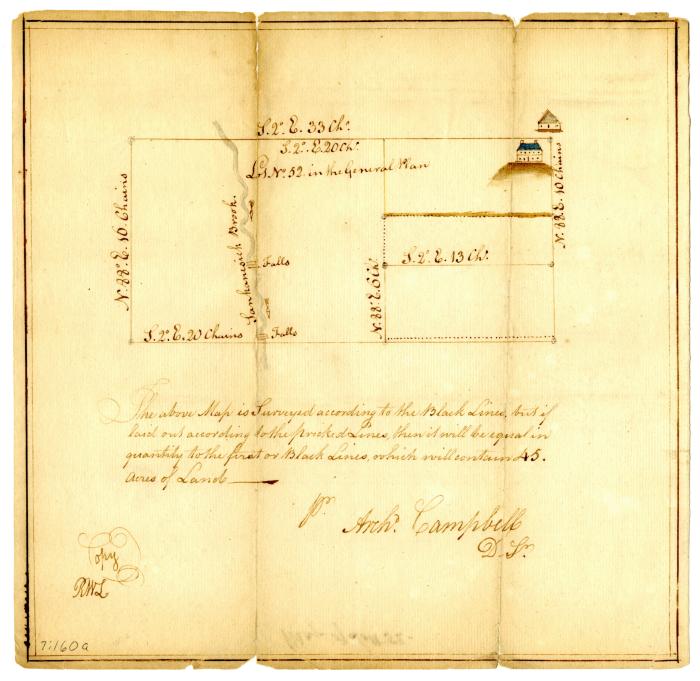 S. 2°. E. 33 Chs.
S. 2°. E. 20 Chs.
Lot No. 52. in the General Plan
N. 88°. E. 16 Chains
Sankanesick Brook.
N. 88°. E. 10 Chains
Falls
S. 2°. E. 13 Chs.
N. 88°. E. 6 Chs.
S. 2°. E. 20 Chains
Falls
The above Map is Surveyed according to the Black Lines, but if
laid out according to the pricked Lines, then it will be equal in
quantity to the first or Black Lines, which will contain 45.
Acres of Land
pr. Archd. Campbell
D. Sr.
Copy
RWL
7:160a